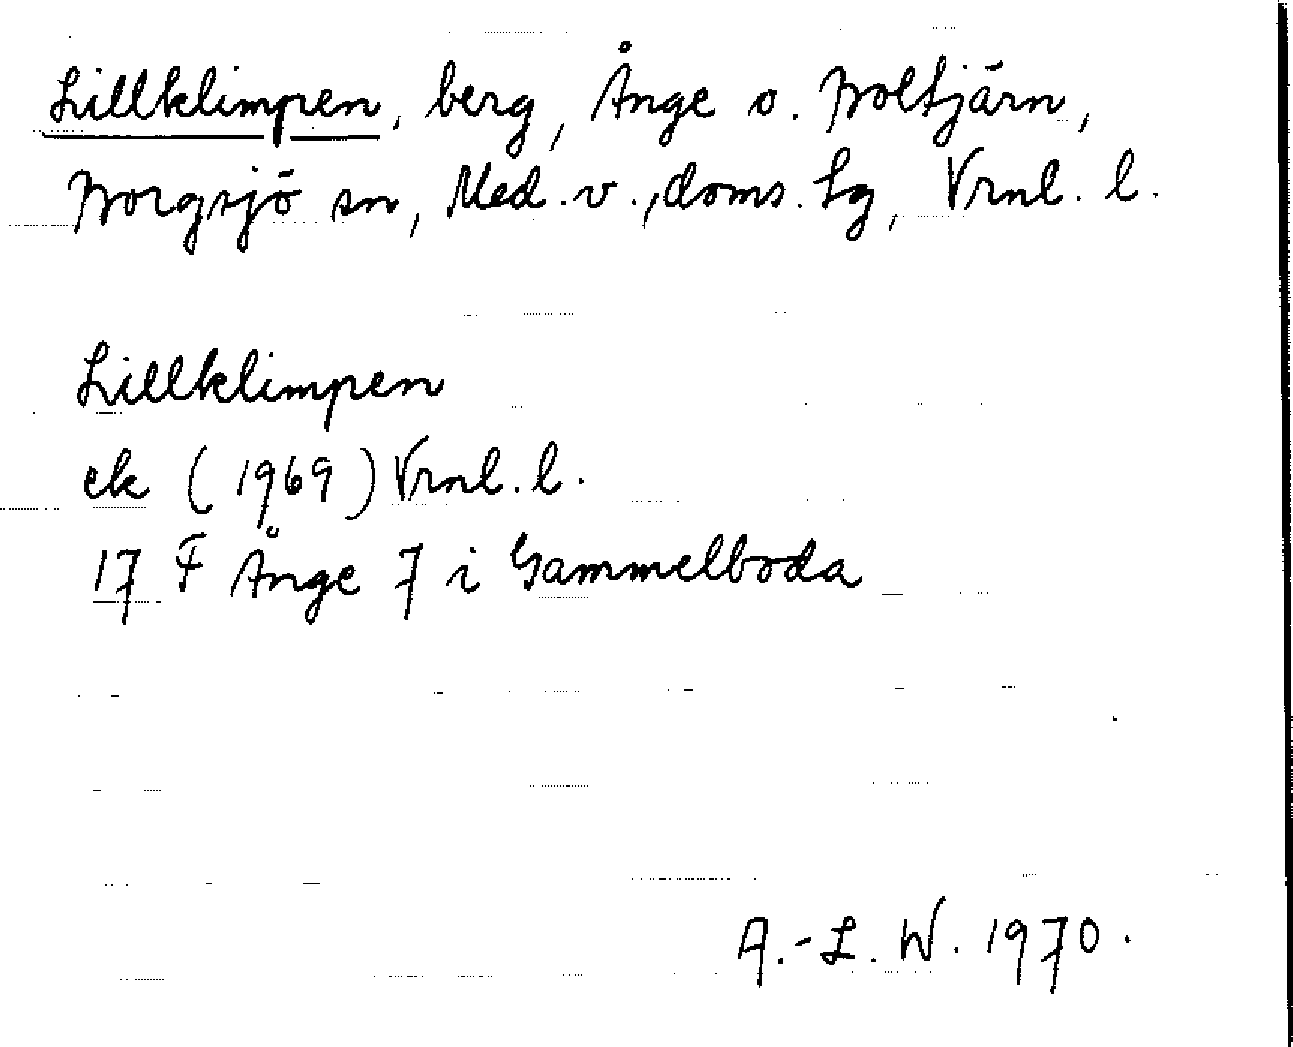 Lillklimpen, berg, Ånge o. Boltjärn,
Borgsjö sn, Med. v., doms. lg, Vrnl. l.
Lillklimpen
ek (1969) Vrnl. l.
17 F Ånge 7 i Gammelboda
A.-L. W. 1970.